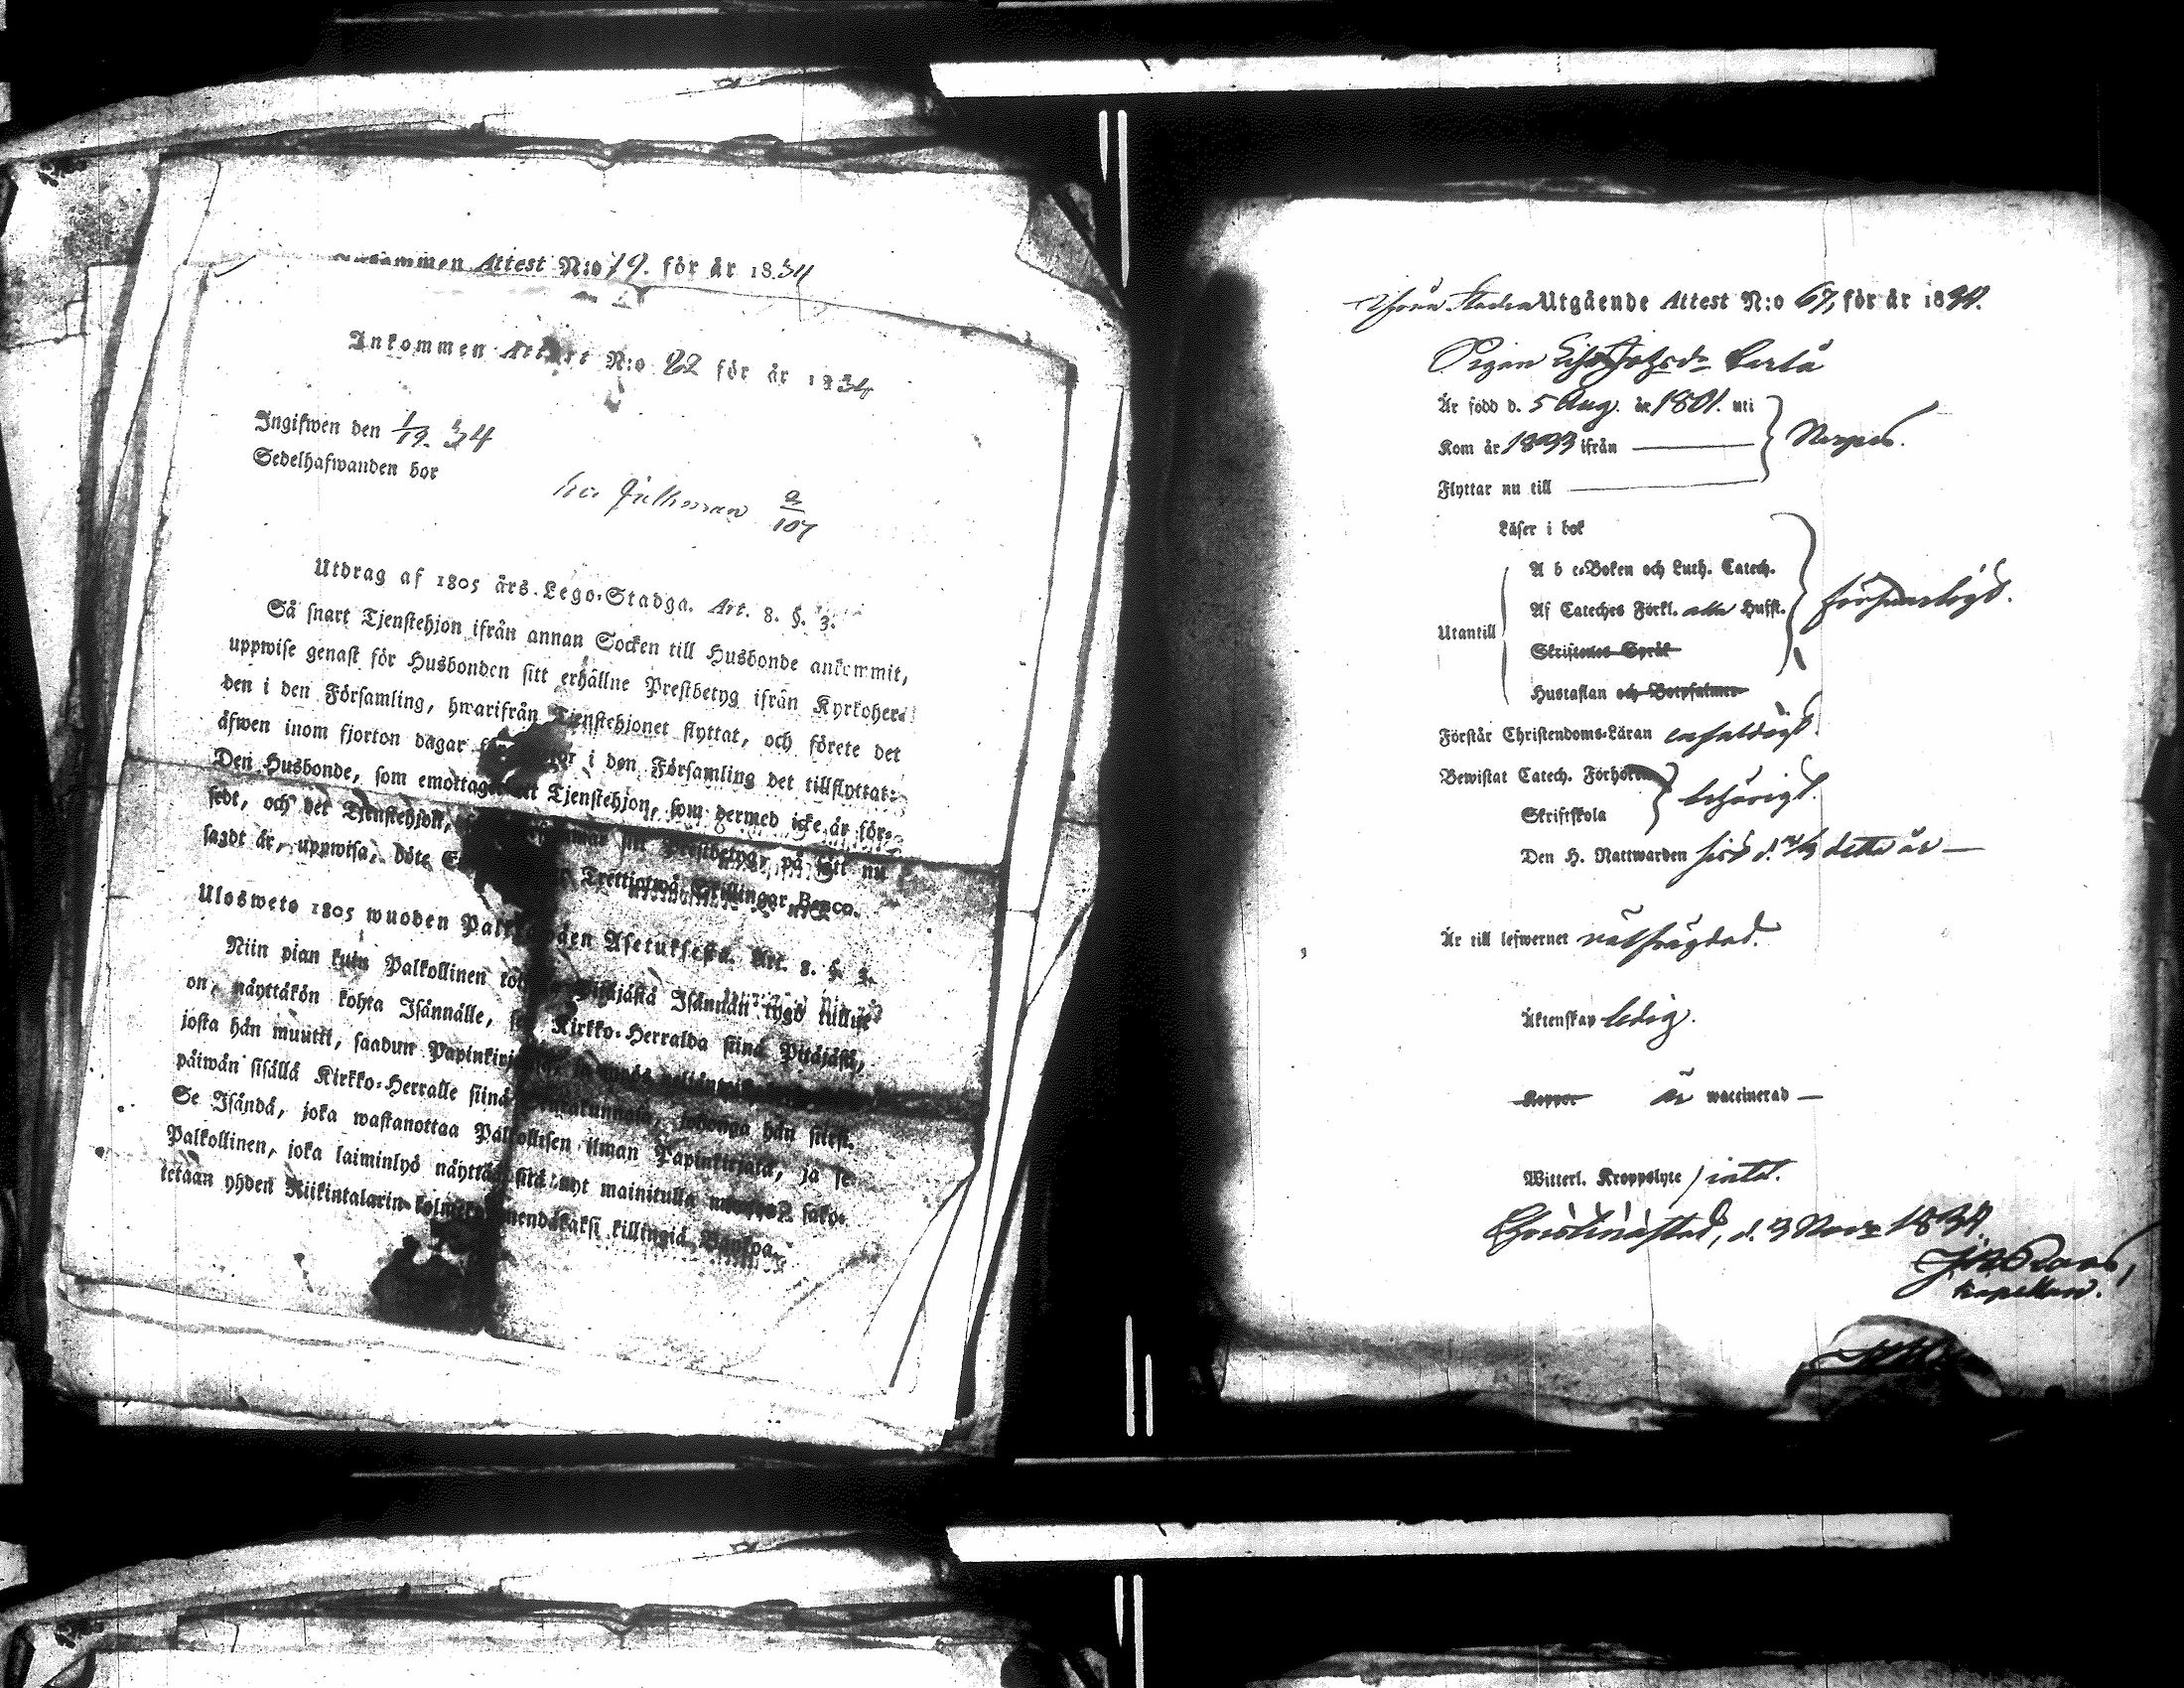 Inkommen Attest N:o 79. för år 1834
Inkommen Attest N:o 82 för år 1834
Ingifwen den 1/19. 34
Sedelhafwanden bor
hos
107
Utdrag af 1805 års Lego-Stadga. Art. 8. §. 3.
Så snart Tjenstehjon ifrån annan Socken till Husbonde ankommit,
uppwise genast för Husbonden sitt erhållne Prestbetyg ifrån Kyrkoher-
den i den Församling, hwarifrån Tjenstehjonet flyttat, och förete det
äfwen inom fjorton dagar i den Församling det tillflyttat.
Den Husbonde, som emottager Tjenstehjon, som dermed icke är för-
sedt, och det Tjenstehjon, sitt Prestbetyg, på sätt nu
sagdt är, uppwisa, böte Trettiotwå Skillingar Banco.
Ulosweto 1805 wuoden Asetuksesta. Art. 8. §. 3.
Niin pian kuin Palkollinen Pitäjästä Isännän tygö tullut
on, näyttäkön kohta Isännälle, Kirkko-Herralda siinä Pitäjäsä,
josta hän muutti, saadun Papinkirjansa,
päiwän sisällä Kirkko-Herralle siinä johonga hän siirsi.
Se Isändä, joka wastanottaa Palkollisen ilman Papinkirjata, ja se
Palkollinen, joka laiminlyö näyttää sitä nyt mainitulla sako-
tetaan yhden Riikintalarin kolmekymmendäkaksi killingiä Bankoa.
Utgående Attest N:o 67, för år 1834.
Pigan Johsdr
Är född d. 5 Aug. år 1801. uti
Kom år 1833 ifrån
Nerpes.
Flyttar nu till
Läser i bok
A b c-Boken och Luth. Catech.
Af Cateches Förkl. alla Husst.
försvarligt.
Utantill
Skriftenes Språk
Hustaflan och Botpsalmer
Förstår Christendoms-Läran enfaldigt.
Bewistat Catech. Förhören
behörigt.
Skriftskola
Den H. Nattwarden sist d. detta år
Är till lefwernet välfrägdad.
Äktenskap ledig.
Koppor är waccinerad
Witterl. Kroppslyte intet.
Christinæstad, d. 3 Novr 1834.
Kapellan.